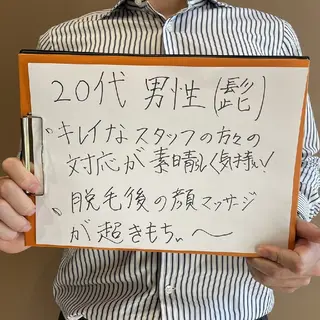 20代 男性(髭)
・キレイなスタッフの方々の
対応が素晴しく気持いい!
・脱毛後の顔マッサージ
が超きもちぃ〜